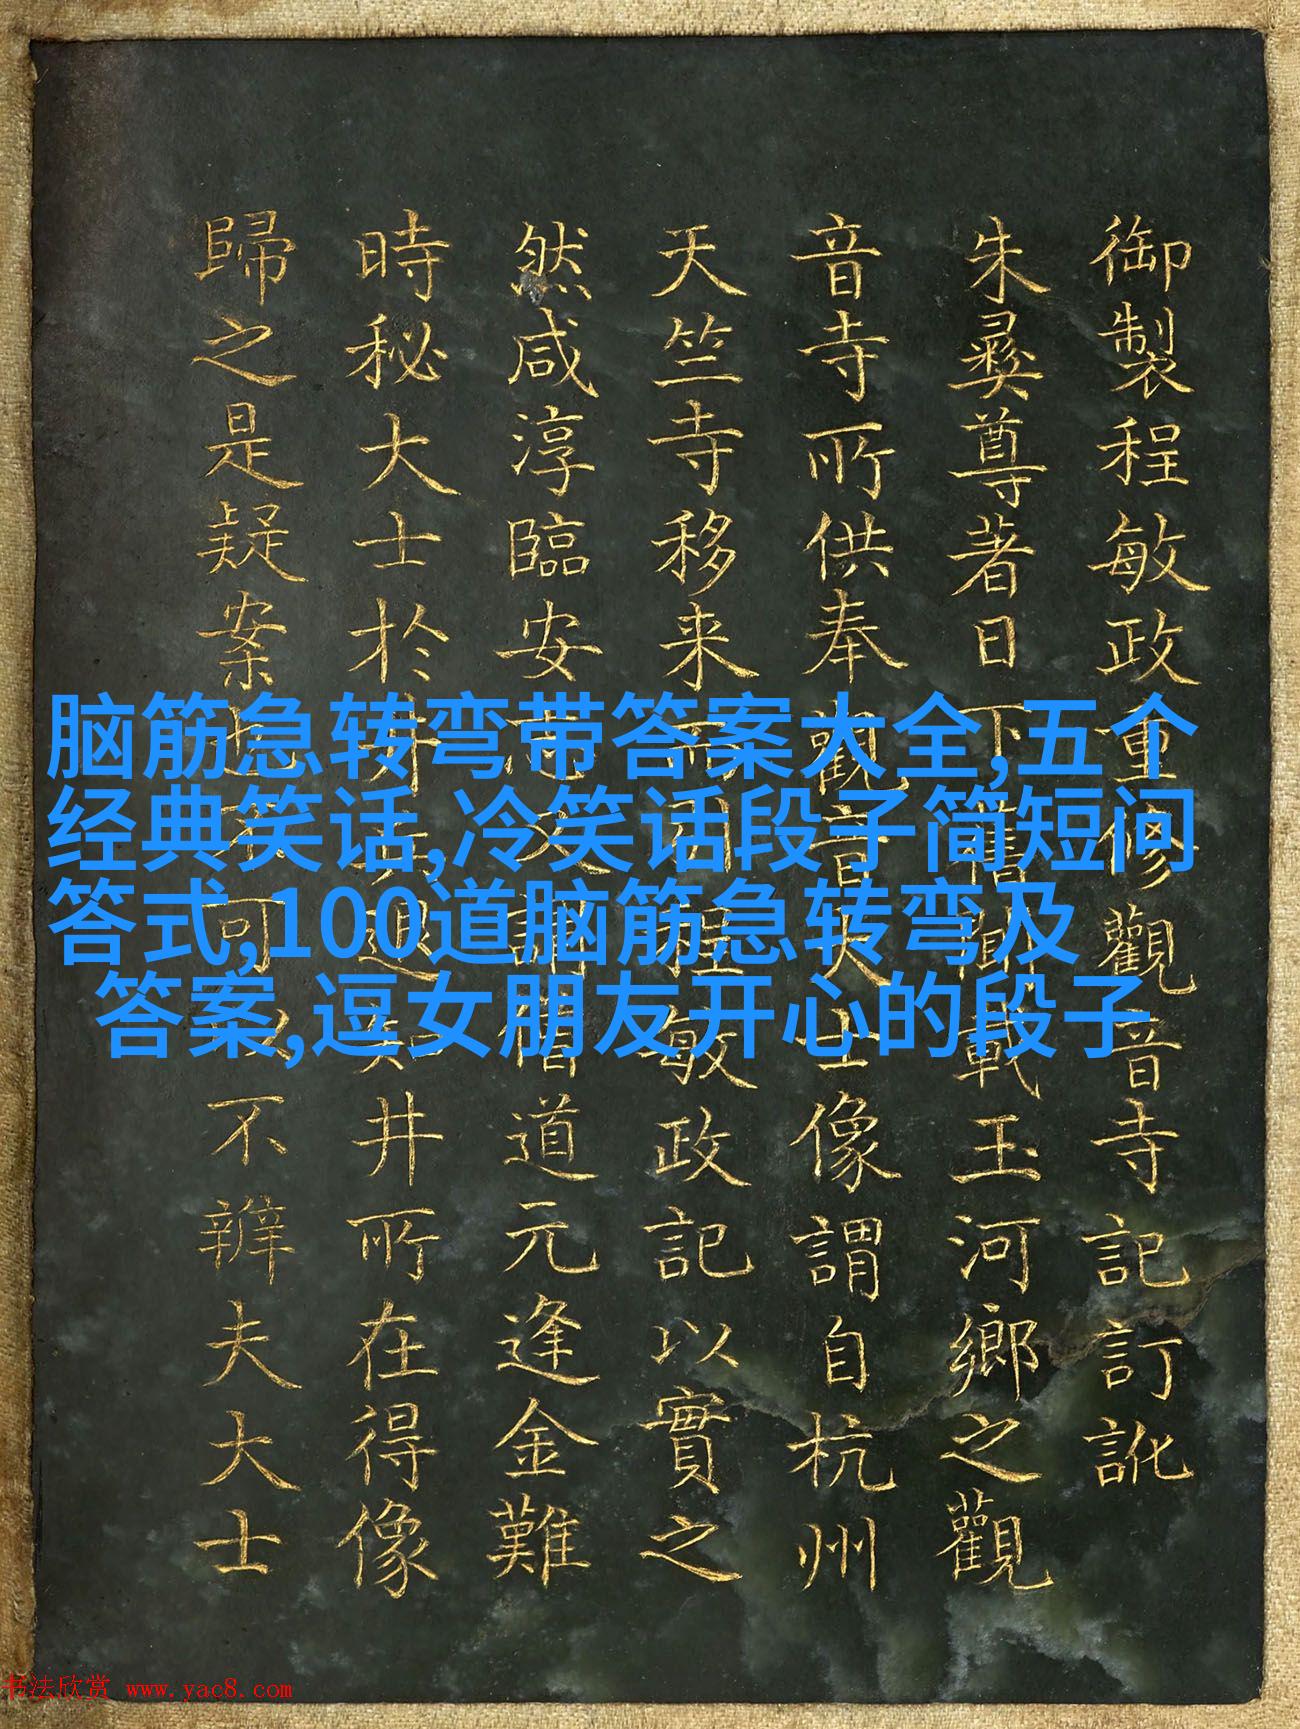 御製程敏政重修觀音寺記訂訛
朱彝尊著日下舊聞載玉河鄉之觀
音寺所供奉觀音大士像謂自杭州
天竺寺移来而引程敏政記以實之
然咸淳臨安志又謂僧道元逢金難
時秘大士於井退井所在得像
歸之是疑案也不可以不辨夫大士
脑筋急转弯带答案大全,五个
经典笑话,冷笑话段子简短问
答式,100道脑筋急转弯及
答案,逗女朋友开心的段子
书法欣赏 www.yac8.com